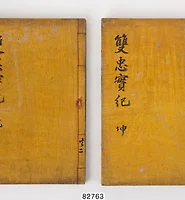 雙忠實紀 坤
忠實紀
82763